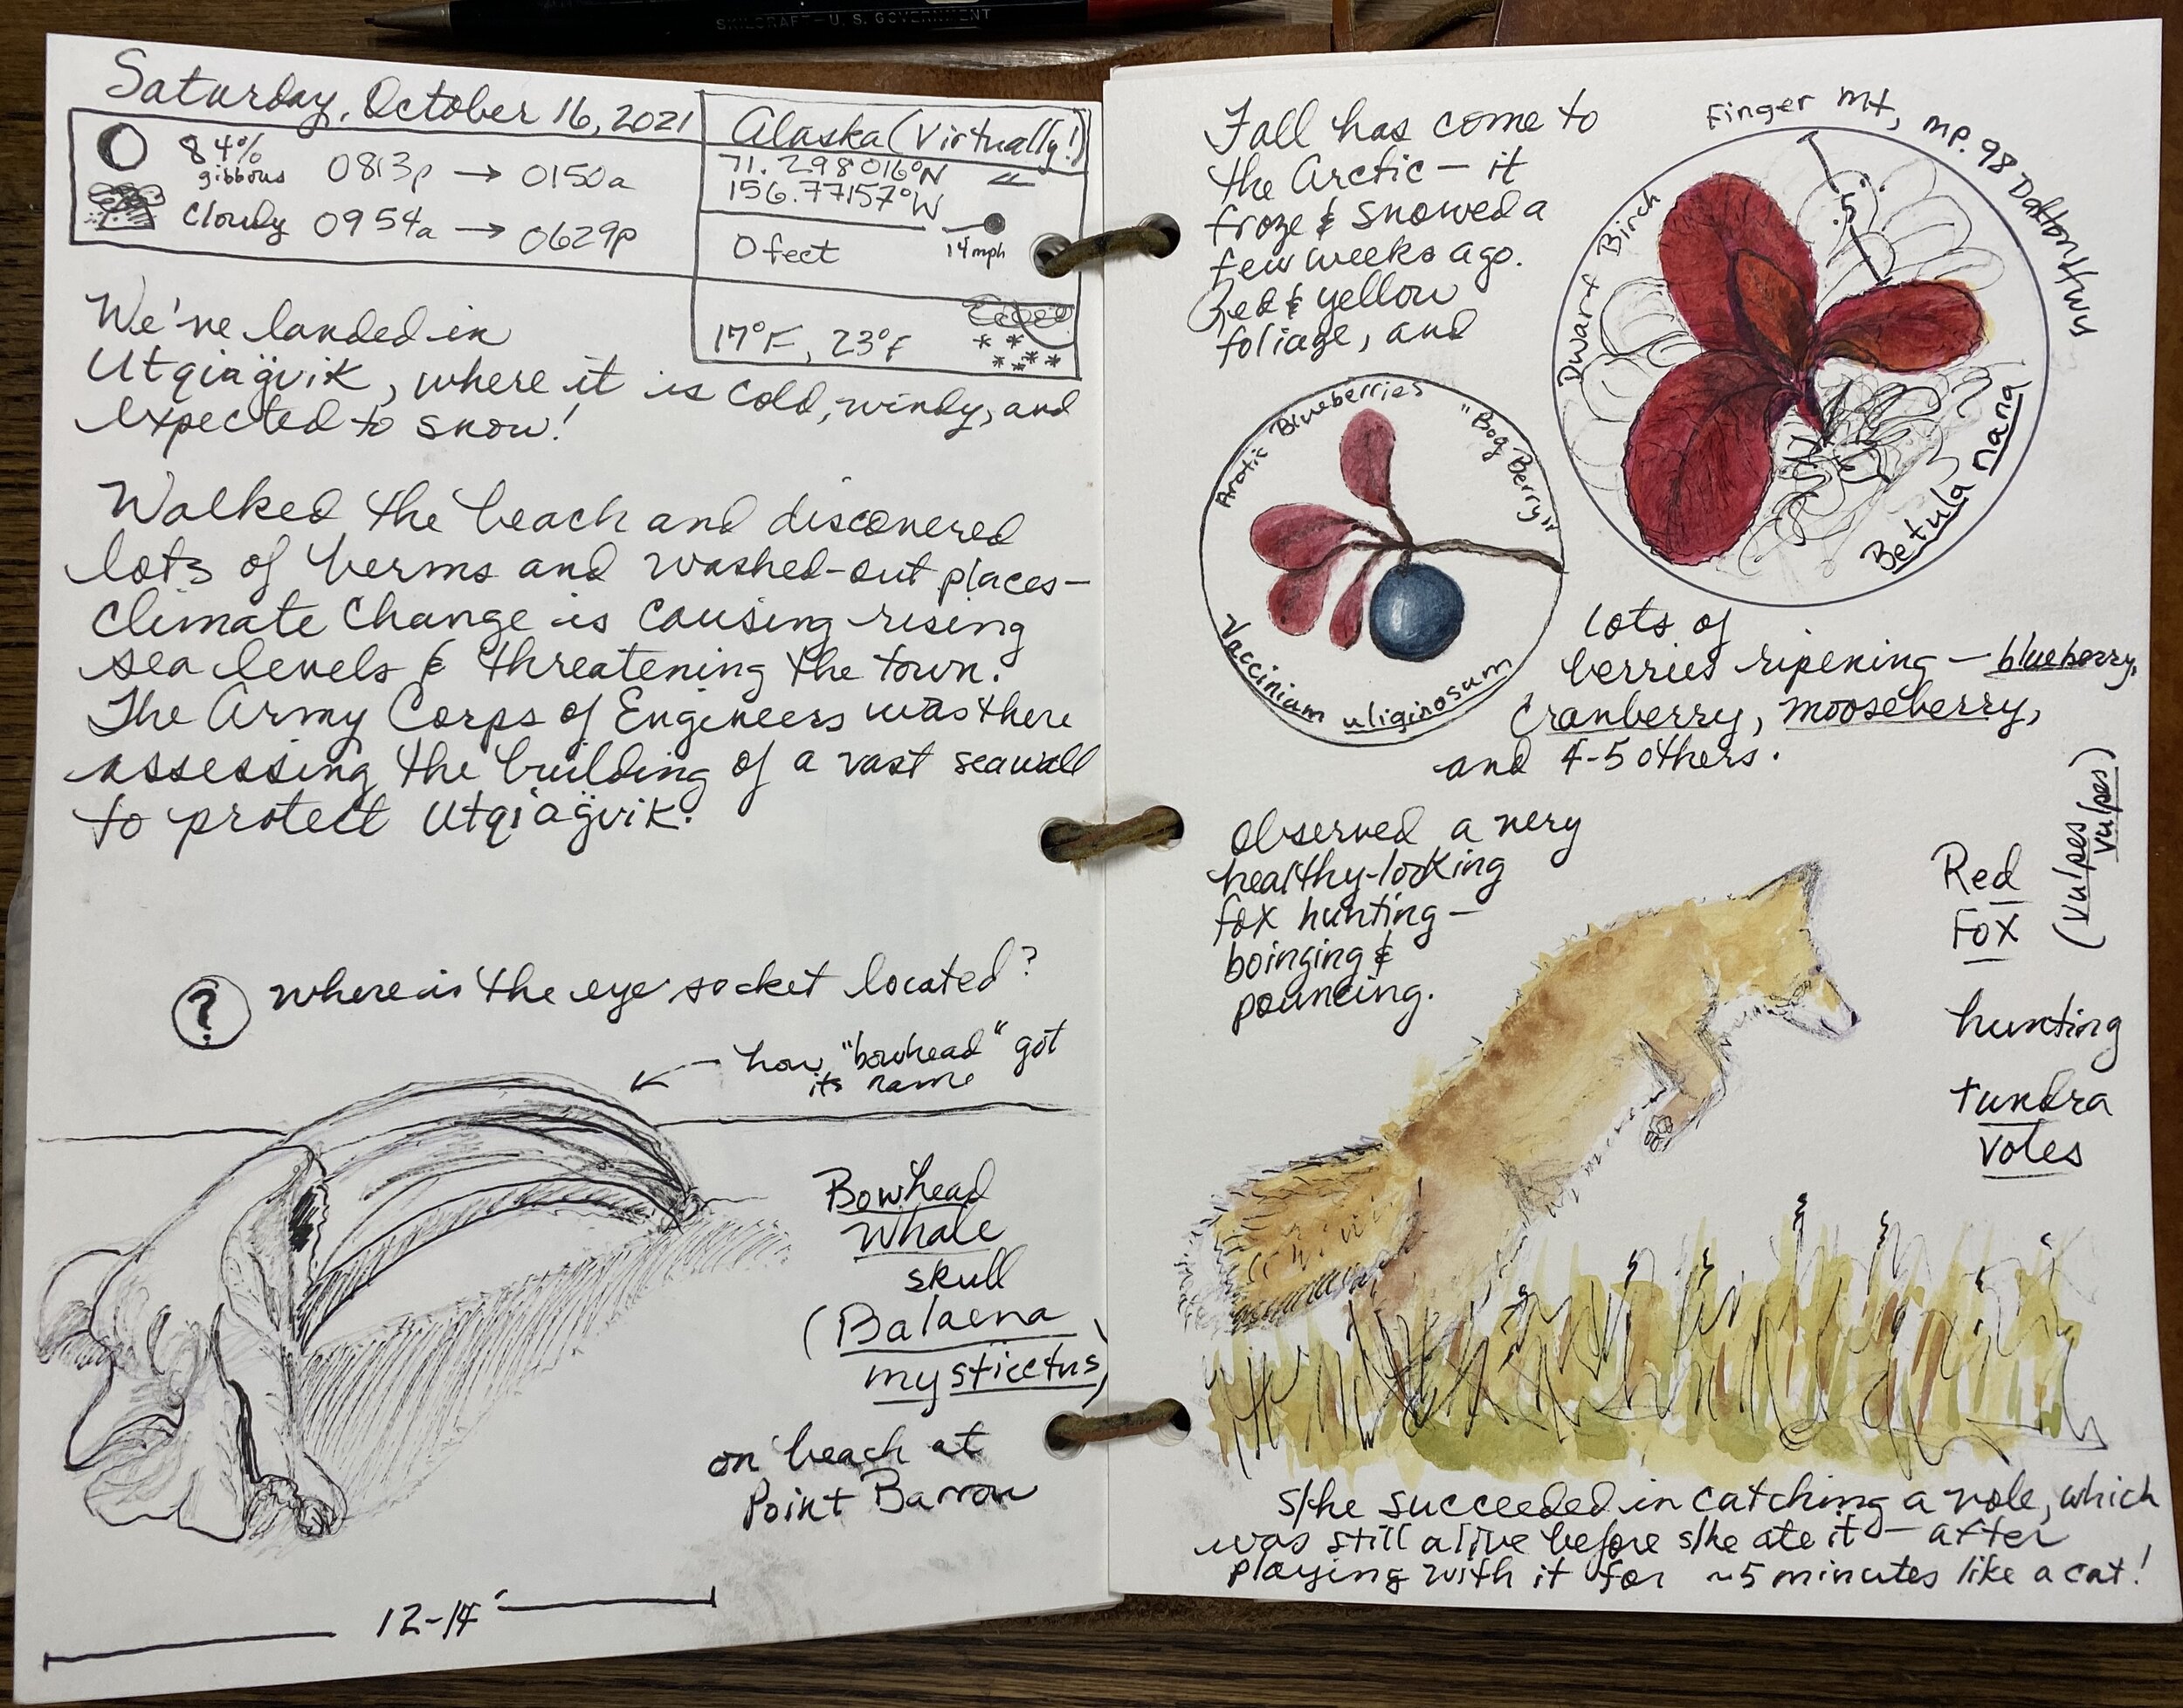 SKILCRAFT—U.S. GOVERNMENT
Saturday, October 16, 2021
84%
gibbous
0813p → 0150a
Cloudy 0954a → 0629p
Alaska (Virtually!)
71.298016°N
156.77157°W
0 feet
14mph
17°F, 23°F
We've landed in
Utqiaġvik, where it is cold, windy, and
expected to snow!
Walked the beach and discovered
lots of berms and washed-out places—
climate change is causing rising
sea levels & threatening the town.
The Army Corps of Engineers was there
assessing the building of a vast seawall
to protect Utqiaġvik.
? Where is the eye socket located?
how "bowhead" got
its name
Bowhead
Whale
skull
(Balaena
mysticetus)
on beach at
Point Barrow
12-14'
Fall has come to
the Arctic — it
froze & snowed a
few weeks ago.
Red & yellow
foliage, and
Finger Mt, MP. 98 Dalton Hwy
Dwarf Birch
.5"
Betula nana
Arctic Blueberries "Bog Berry"
Vaccinium uliginosum
lots of
berries ripening — blueberry,
cranberry, mooseberry,
and 4-5 others.
Observed a very
healthy-looking
fox hunting —
boinging &
pouncing.
Red
Fox
(Vulpes
vulpes)
hunting
tundra
voles
s/he succeeded in catching a vole, which
was still alive before s/he ate it — after
playing with it for ~5 minutes like a cat!